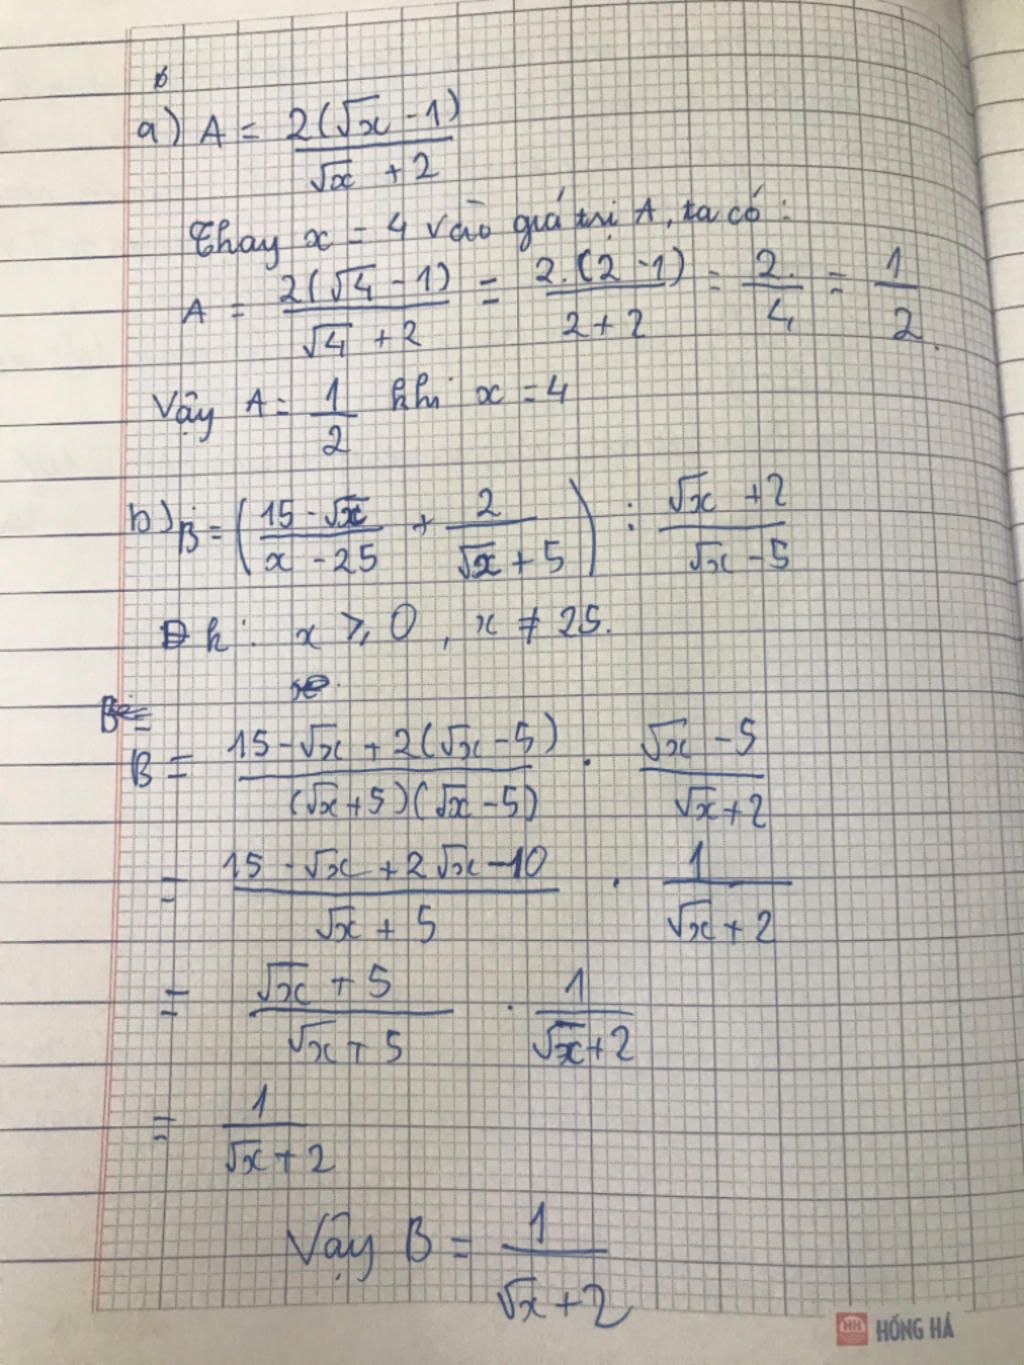 a) A = 2(√x - 1) / √x + 2
Thay x = 4 vào giá trị A, ta có:
A = 2(√4 - 1) / √4 + 2 = 2.(2 - 1) / 2 + 2 = 2. / 4 = 1 / 2.
Vậy A = 1 / 2 khi x = 4
b) B = (15 - √x / x - 25 + 2 / √x + 5) : √x + 2 / √x - 5
Đk: x ≥ 0, x ≠ 25.
B = 15 - √x + 2(√x - 5) / (√x + 5)(√x - 5) . √x - 5 / √x + 2
= 15 - √x + 2√x - 10 / √x + 5 . 1 / √x + 2
= √x + 5 / √x + 5 . 1 / √x + 2
= 1 / √x + 2
Vậy B = 1 / √x + 2
HH HỒNG HÀ